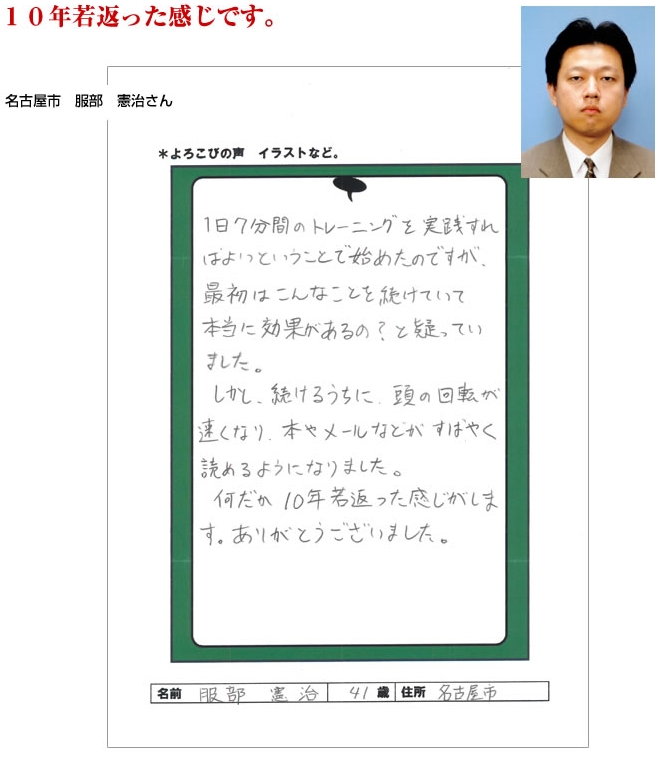 １０年若返った感じです。
名古屋市　服部　憲治さん
＊よろこびの声　イラストなど。
1日7分間のトレーニングを実践すれ
ばよいということで始めたのですが、
最初はこんなことを続けていて
本当に効果があるの？と疑ってい
ました。
しかし、続けるうちに、頭の回転が
速くなり、本やメールなどがすばやく
読めるようになりました。
何だか10年若返った感じがしま
す。ありがとうございました。
名前　服部　憲治　41歳　住所　名古屋市